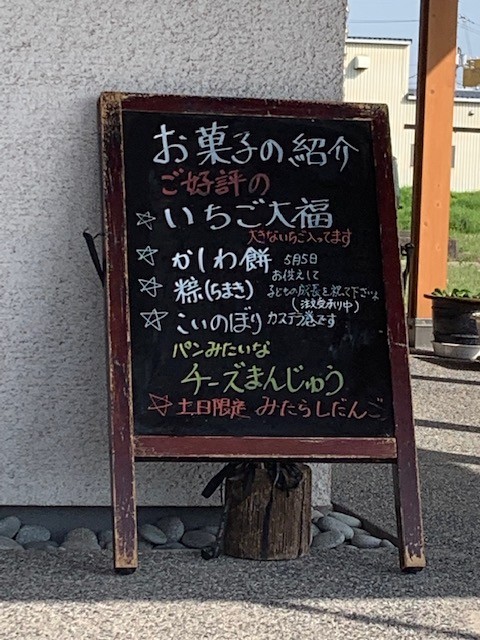 お菓子の紹介
ご好評の
☆いちご大福
大きないちご入ってます
☆かしわ餅 5月5日
☆粽(ちまき) お供えして
子どもの成長を祝って下さいよ
(注文承り中)
☆こいのぼり カステラ巻です
パンみたいな
チーズまんじゅう
☆土日限定 みたらしだんご